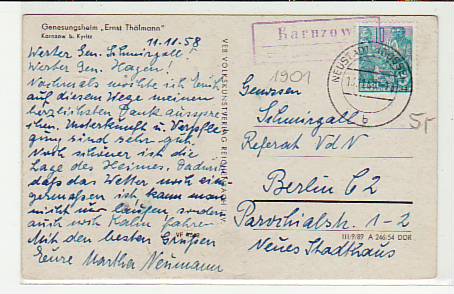 Genesungsheim „Ernst Thälmann"
Karnzow b. Kyritz
11.11.58
Werter Gen. Schmirgall!
Werter Gen. Hagen!
Nochmals möchte ich Euch
auf diesem Wege meinen
herzlichsten Dank ausspre-
chen. Unterkunft u. Verpfle-
gung sind sehr gut.
Noch schöner ist die
Lage des Heimes. Dadurch
daß das Wetter noch eini-
germaßen ist kann man
nicht nur laufen, sondern
auch noch Kahn fahren
Mit den besten Grüßen
Eure Martha Neumann
VEB VOLKSKUNSTVERLAG REICHENBACH
Karnzow
NEUSTADT (DOSSE)
10
b
1901
Genossen
Schmirgall
Referat VdN
Berlin C2
Parochialstr. 1-2
Neues Stadthaus
5,-
III/9/89 A 246/54 DDR